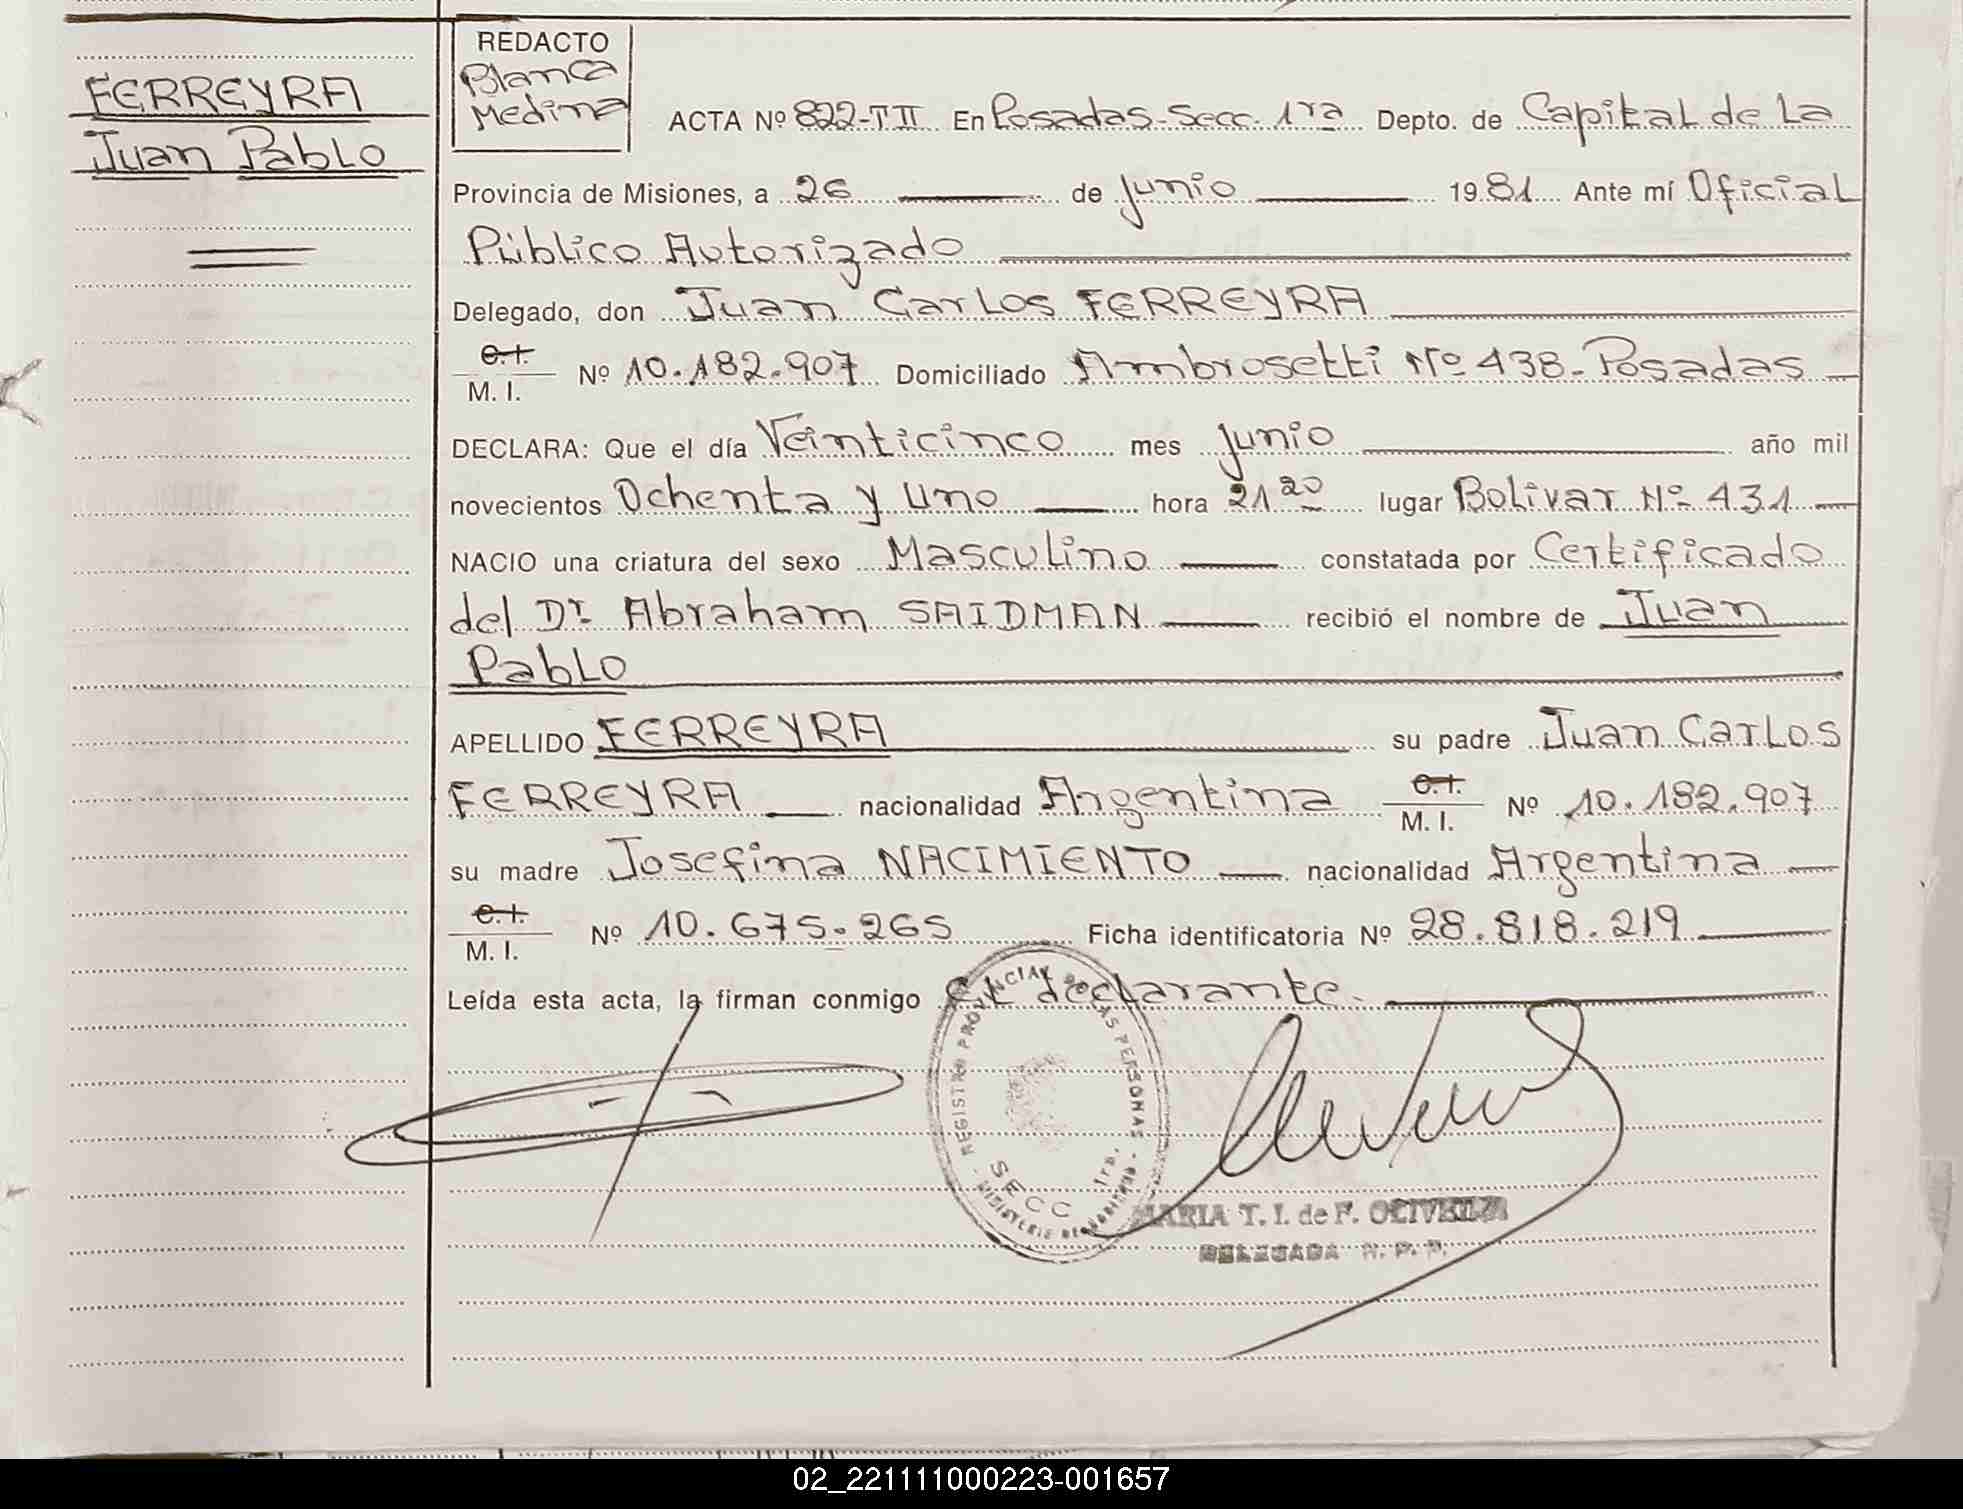 FERREYRA
Juan Pablo
REDACTO
Blanca
Medina
ACTA Nº 822-TII En Posadas-Secc. 1ra Depto. de Capital de La
Provincia de Misiones, a 26 de junio 1981 Ante mí Oficial
Público Autorizado
Delegado, don Juan Carlos FERREYRA
C.I.
M. I. Nº 10.182.907 Domiciliado Ambrosetti Nº 438-Posadas
DECLARA: Que el día Veinticinco mes junio año mil
novecientos Ochenta y uno hora 21 20 lugar Bolivar Nº 431
NACIO una criatura del sexo Masculino constatada por Certificado
del Dr. Abraham SAIDMAN recibió el nombre de Juan
Pablo
APELLIDO FERREYRA su padre Juan Carlos
FERREYRA nacionalidad Argentina C.I. M. I. Nº 10.182.907
su madre Josefina NACIMIENTO nacionalidad Argentina
C.I.
M. I. Nº 10.675.265 Ficha identificatoria Nº 28.818.219
Leída esta acta, la firman conmigo el declarante.
REGISTRO PROVINCIAL DE LAS PERSONAS
SECC 1ra.
MARIA T. I. de F. OLIVEIRA
DELEGADA R. P. P.
02_221111000223-001657